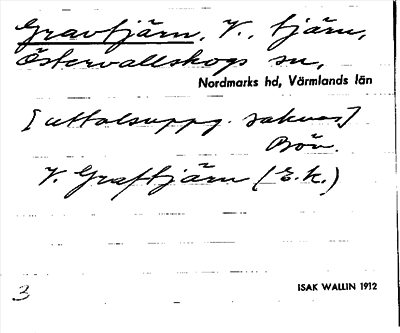 Gravtjärn, V., tjärn,
Östervallskogs sn,
Nordmarks hd, Värmlands län
[uttalsuppg. saknas]
Bön.
V. Graftjärn (E.k.)
3
ISAK WALLIN 1912